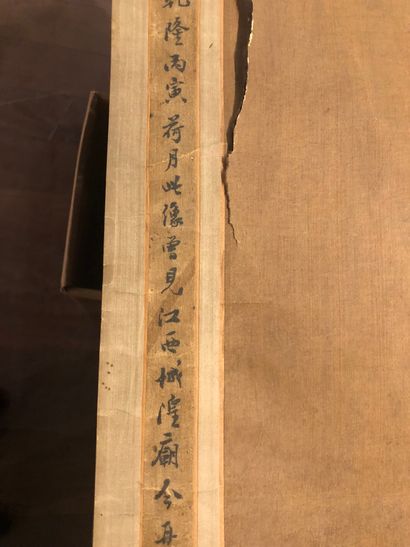 乾隆丙寅荷月此像曾見江西城隍廟今再